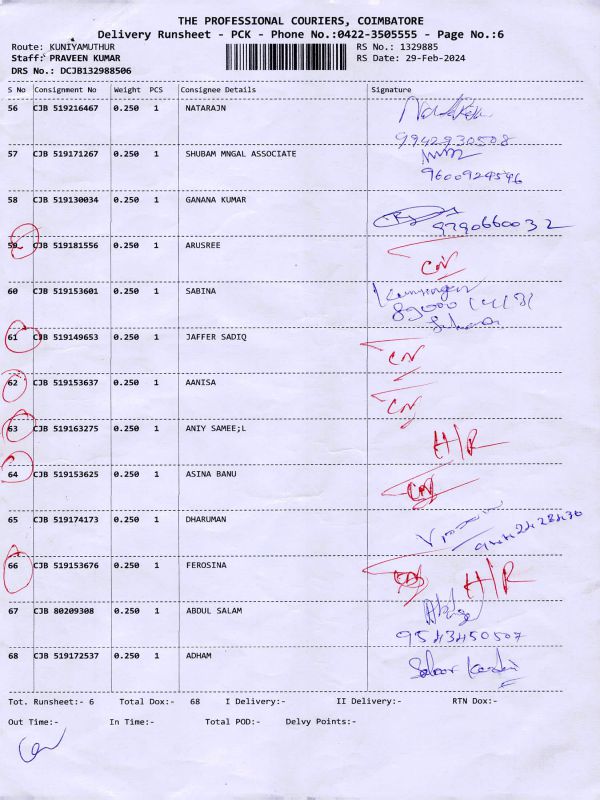 THE PROFESSIONAL COURIERS, COIMBATORE
Delivery Runsheet - PCK - Phone No.:0422-3505555 - Page No.:6
Route: KUNIYAMUTHUR RS No.: 1329885
Staff: PRAVEEN KUMAR RS Date: 29-Feb-2024
DRS No.: DCJB132988506
S No Consignment No Weight PCS Consignee Details Signature
56 CJB 519216467 0.250 1 NATARAJN
9942930508
57 CJB 519171267 0.250 1 SHUBAM MNGAL ASSOCIATE
9600924596
58 CJB 519130034 0.250 1 GANANA KUMAR
9790660032
59 CJB 519181556 0.250 1 ARUSREE
60 CJB 519153601 0.250 1 SABINA
61 CJB 519149653 1 0.250 JAFFER SADIQ
62 CJB 519153637 0.250 1 AANISA
63 CJB 519163275 0.250 1 ANIY SAMEE;L H/R
64 CJB 519153625 0.250 1 ASINA BANU
65 CJB 519174173 0.250 1 DHARUMAN
66 CJB 519153676 0.250 1 FEROSINA H/R
67 CJB 80209308 0.250 1 ABDUL SALAM
9543450507
68 CJB 519172537 0.250 1 ADHAM
Tot. Runsheet:- 6 Total Dox:- 68 I Delivery:- II Delivery:- RTN Dox:-
Out Time:- In Time:- Total POD:- Delvy Points:-